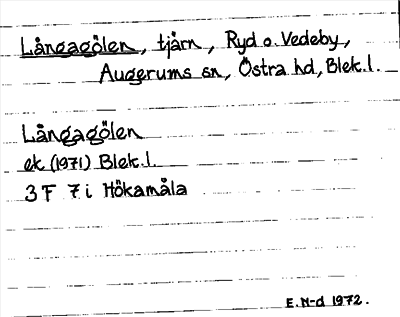 Långagölen, tjärn, Ryd o. Vedeby,
Augerums sn, Östra hd, Blek.l.
Långagölen
ek (1971) Blek.l.
3 F 7 i Hökamåla
E.N-d 1972.